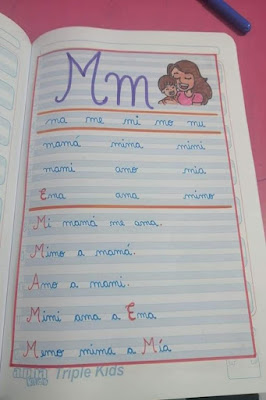 Mm
ma me mi mo mu
mamá mima mimi
mami amo mia
Ema ama mimo
Mi mamá me ama.
Mimo a mamá.
Amo a mami.
Mimi ama a Ema
Memo mima a Mía
Triple Kids